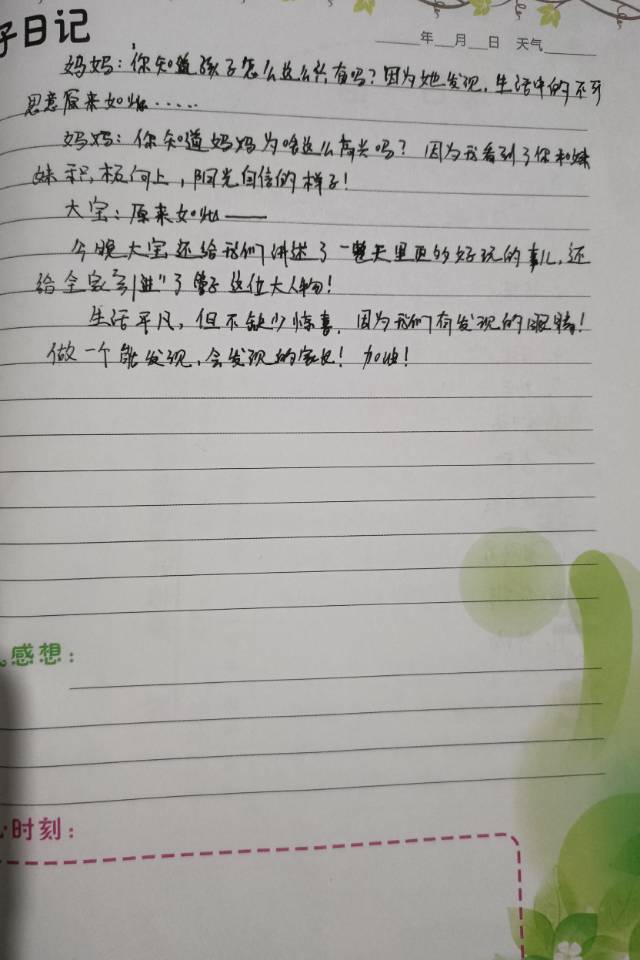 子日记
年 月 日 天气
妈妈：你知道孩子怎么这么兴奋吗？因为她发现，生活中的不可
思意原来如此……
妈妈：你知道妈妈为啥这么高兴吗？因为我看到了你和妹
妹积极向上，阳光自信的样子！
大宝：原来如此——
今晚大宝还给我们讲述了一整天里更多好玩的事儿，还
给全家“引进”了管子这位大人物！
生活平凡，但不缺少惊喜，因为我们有发现的眼睛！
做一个能发现，会发现的家长！加油！
感想：
心时刻：